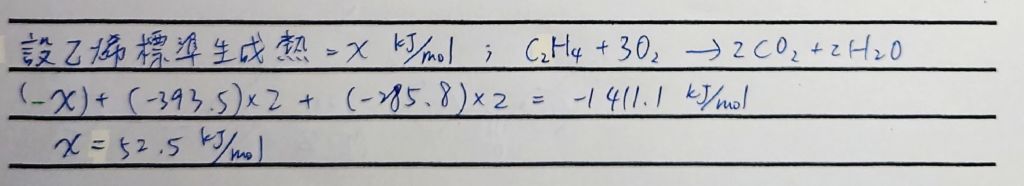 設乙烯標準生成熱 = x kJ/mol ; C₂H₄ + 3O₂ → 2CO₂ + 2H₂O
(-x) + (-393.5)×2 + (-285.8)×2 = -1411.1 kJ/mol
x = 52.5 kJ/mol